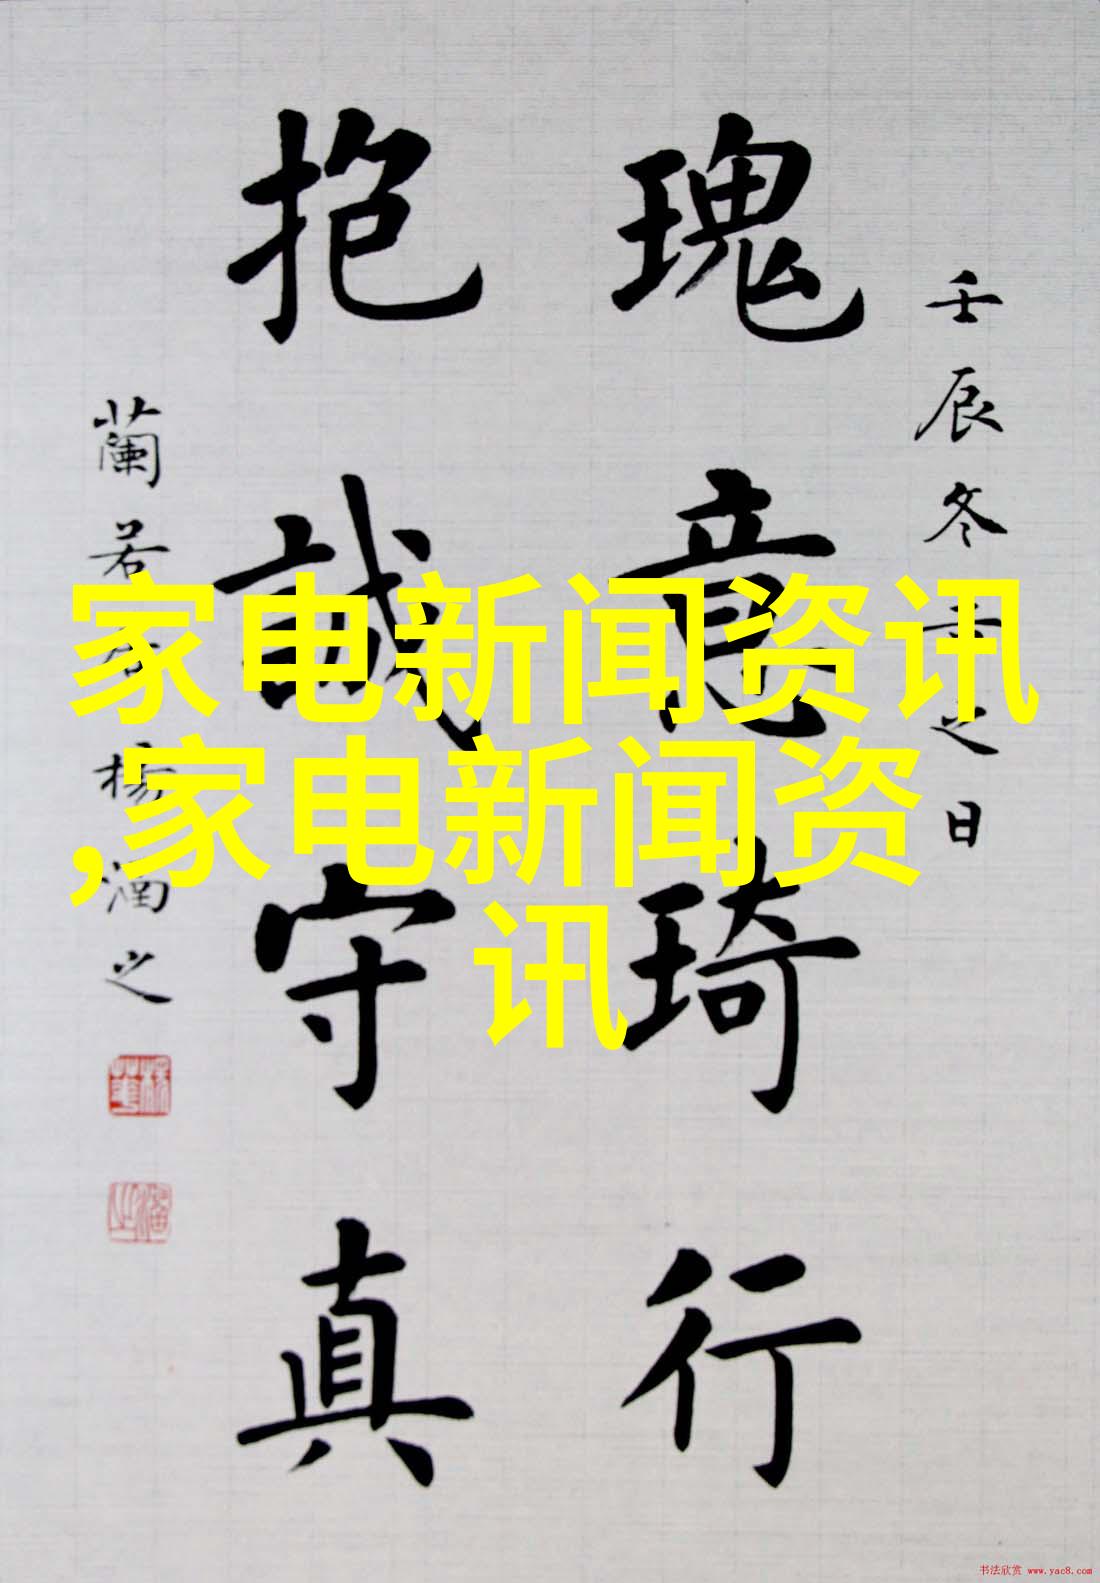 壬辰冬之日
瑰意琦行
抱誠守真
蘭若楊酒之
家电新闻资讯
,家电新闻资
讯
书法欣赏 www.yac8.com